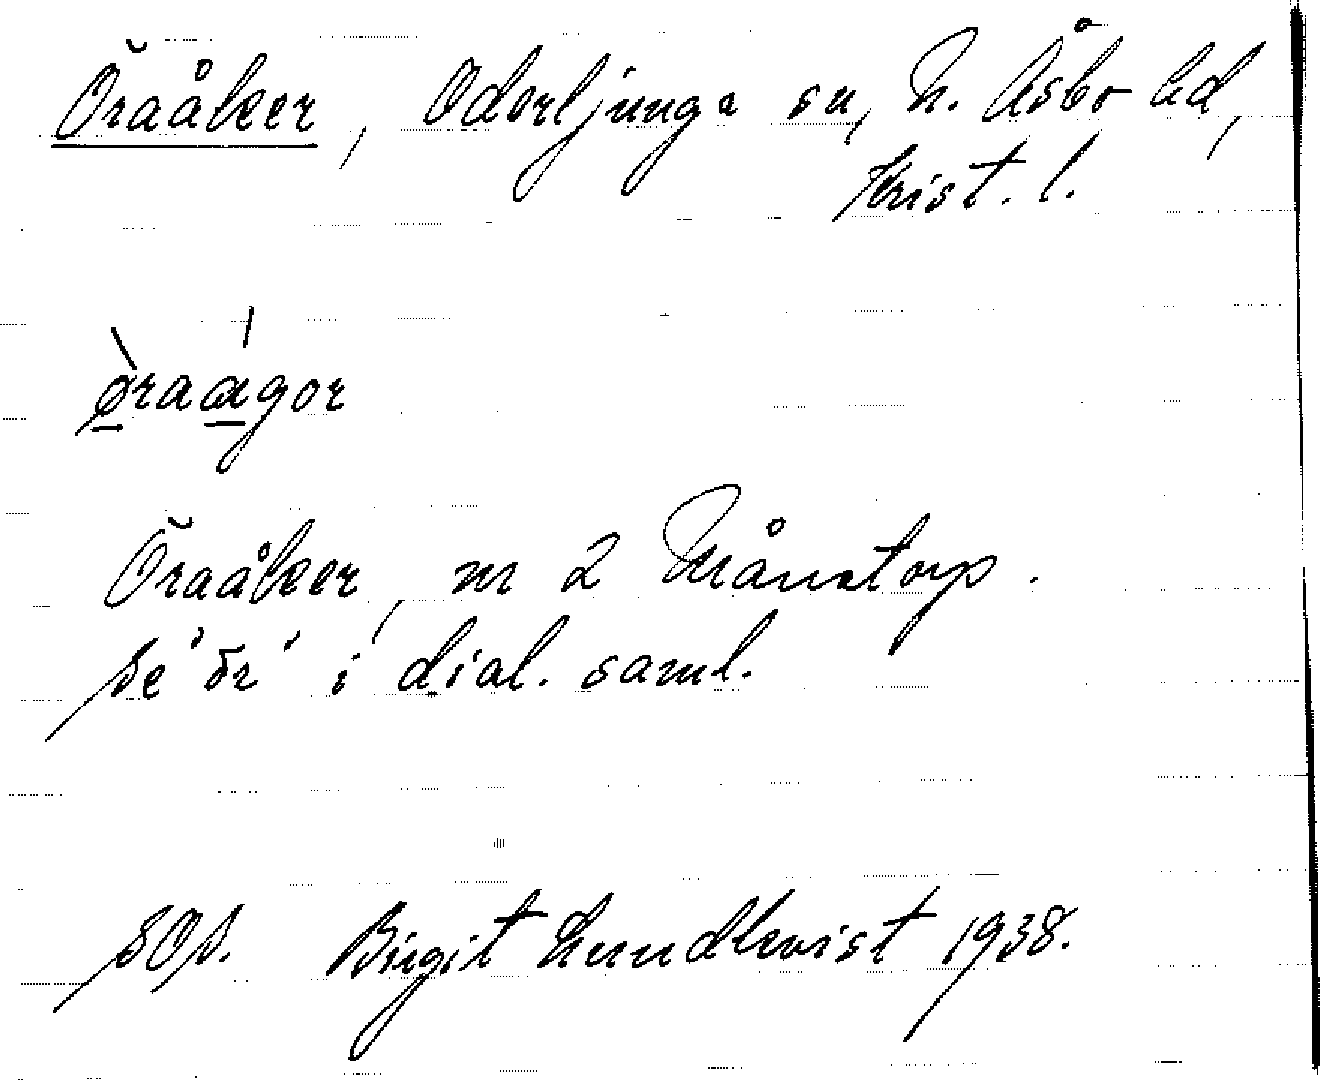 Öraåker, Oderljunga sn, N. Åsbo hd,
Krist. l.
øraågor
Öraåker, nr 2 Månstorp.
Se 'ör' i dial. saml.
SOS. Birgit Lundkvist 1938.